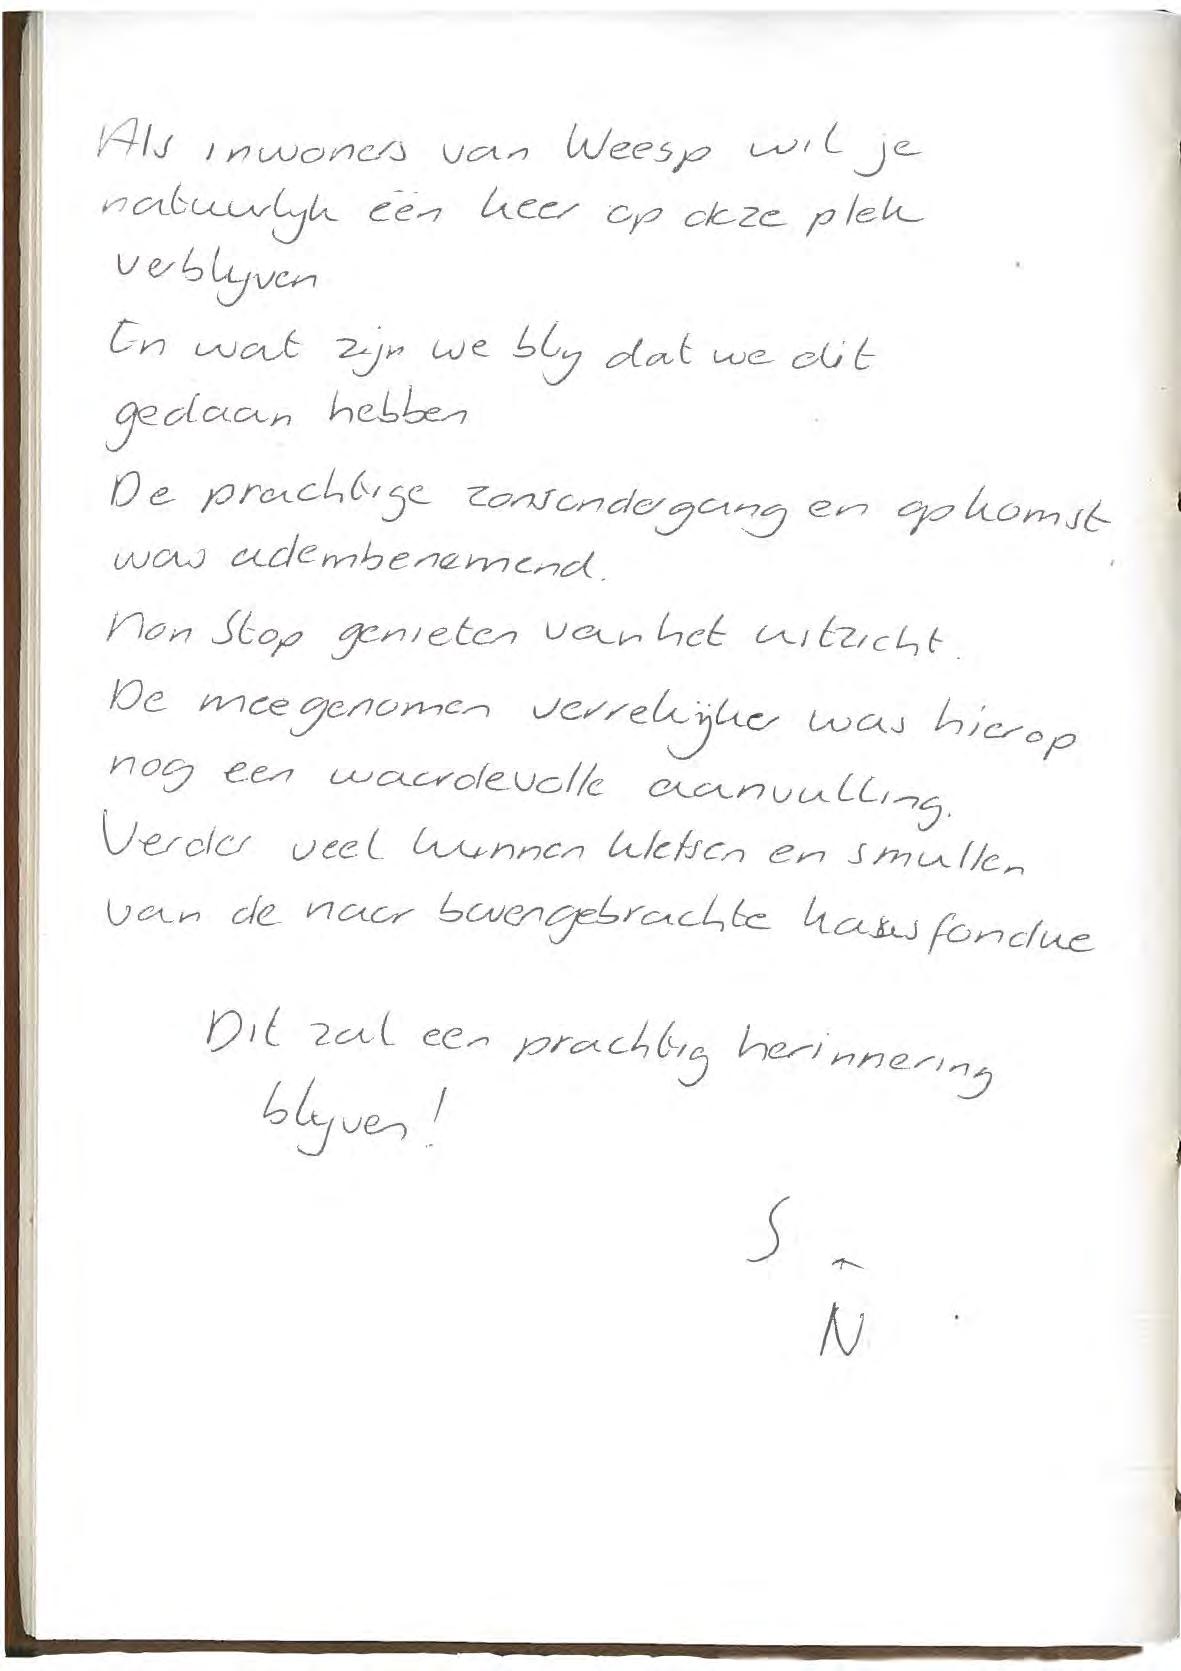 Als inwoners van Weesp wil je
natuurlijk één keer op deze plek
verblijven
En wat zijn we blij dat we dit
gedaan hebben
De prachtige zonsondergang en opkomst
was adembenemend.
Non Stop genieten van het uitzicht.
De meegenomen verrekijker was hierop
nog een waardevolle aanvulling.
Verder veel kunnen kletsen en smullen
van de naar bovengebrachte kaasfondue
Dit zal een prachtig herinnering
blijven!
S
N